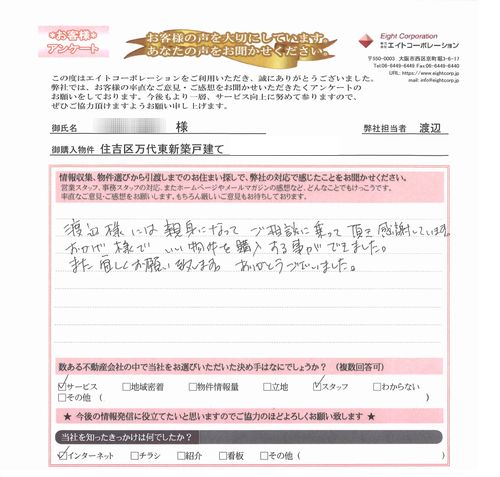 *お客様*
アンケート
お客様の声を大切にしています。
あなたの声をお聞かせください。
Eight Corporation
株式会社エイトコーポレーション
〒550-0003 大阪市西区京町堀3-6-17
Tel:06-6449-6449 Fax:06-6449-6440
URL: https://www.eightcorp.jp
mail: info@eightcorp.jp
この度はエイトコーポレーションをご利用いただき、誠にありがとうございました。
弊社では、お客様の率直なご意見・ご感想をお聞かせいただきたくアンケートの
お願いをしております。今後もより一層、サービス向上に努めて参りますので、
ぜひご協力頂けますようお願い申し上げます。
御氏名 様 弊社担当者 渡辺
御購入物件 住吉区万代東新築戸建て
情報収集、物件選びから引渡しまでのお住まい探しで、弊社の対応で感じたことをお聞かせください。
営業スタッフ、事務スタッフの対応、またホームページやメールマガジンの感想など、どんなことでもけっこうです。
率直なご意見・ご感想をお願いします。もちろん厳しいご意見もお待ちしております。
渡辺様には親身になってご相談に乗って頂き感謝しています。
おかげ様でいい物件を購入する事ができました。
また宜しくお願い致します。ありがとうございました。
数ある不動産会社の中で当社をお選びいただいた決め手はなにでしょうか? (複数回答可)
☑サービス □地域密着 □物件情報量 □立地 ☑スタッフ □わからない
□その他 ( )
★ 今後の情報発信に役立てたいと思いますのでご協力のほどよろしくお願い致します ★
当社を知ったきっかけは何でしたか?
☑インターネット □チラシ □紹介 □看板 □その他 ( )